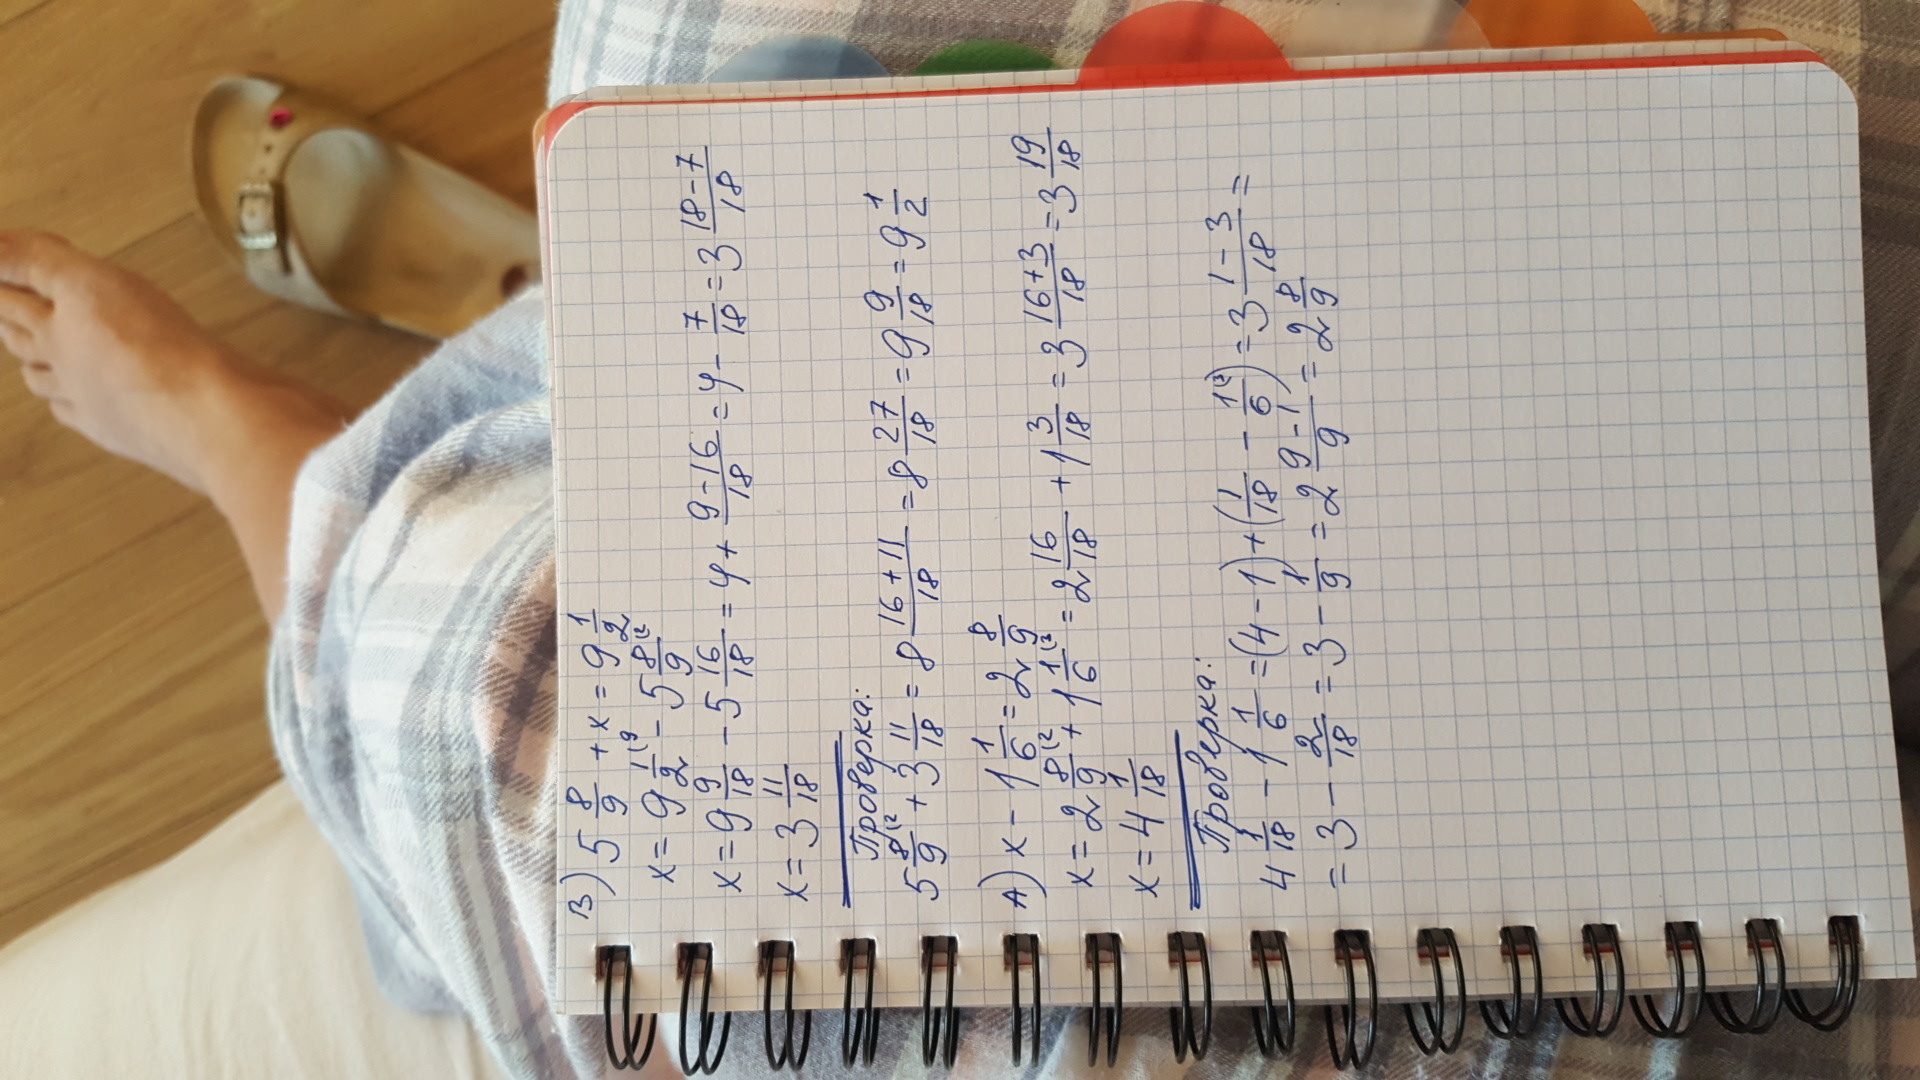 В) 5 8/9 + x = 9 1/2
x = 9 1/2 (9 - 5 8/9 (2
x = 9 9/18 - 5 16/18 = 4 + 9-16/18 = 4 - 7/18 = 3 18-7/18
x = 3 11/18
Проверка:
5 8/9 (2 + 3 11/18 = 8 16+11/18 = 8 27/18 = 9 9/18 = 9 1/2
А) x - 1 1/6 = 2 8/9
x = 2 8/9 (2 + 1 1/6 (3 = 2 16/18 + 1 3/18 = 3 16+3/18 = 3 19/18
x = 4 1/18
Проверка:
4 1/18 - 1 1/6 = (4-1) + (1/18 - 1/6 (3) = 3 1-3/18 =
= 3 - 2/18 = 3 - 1/9 = 2 9-1/9 = 2 8/9